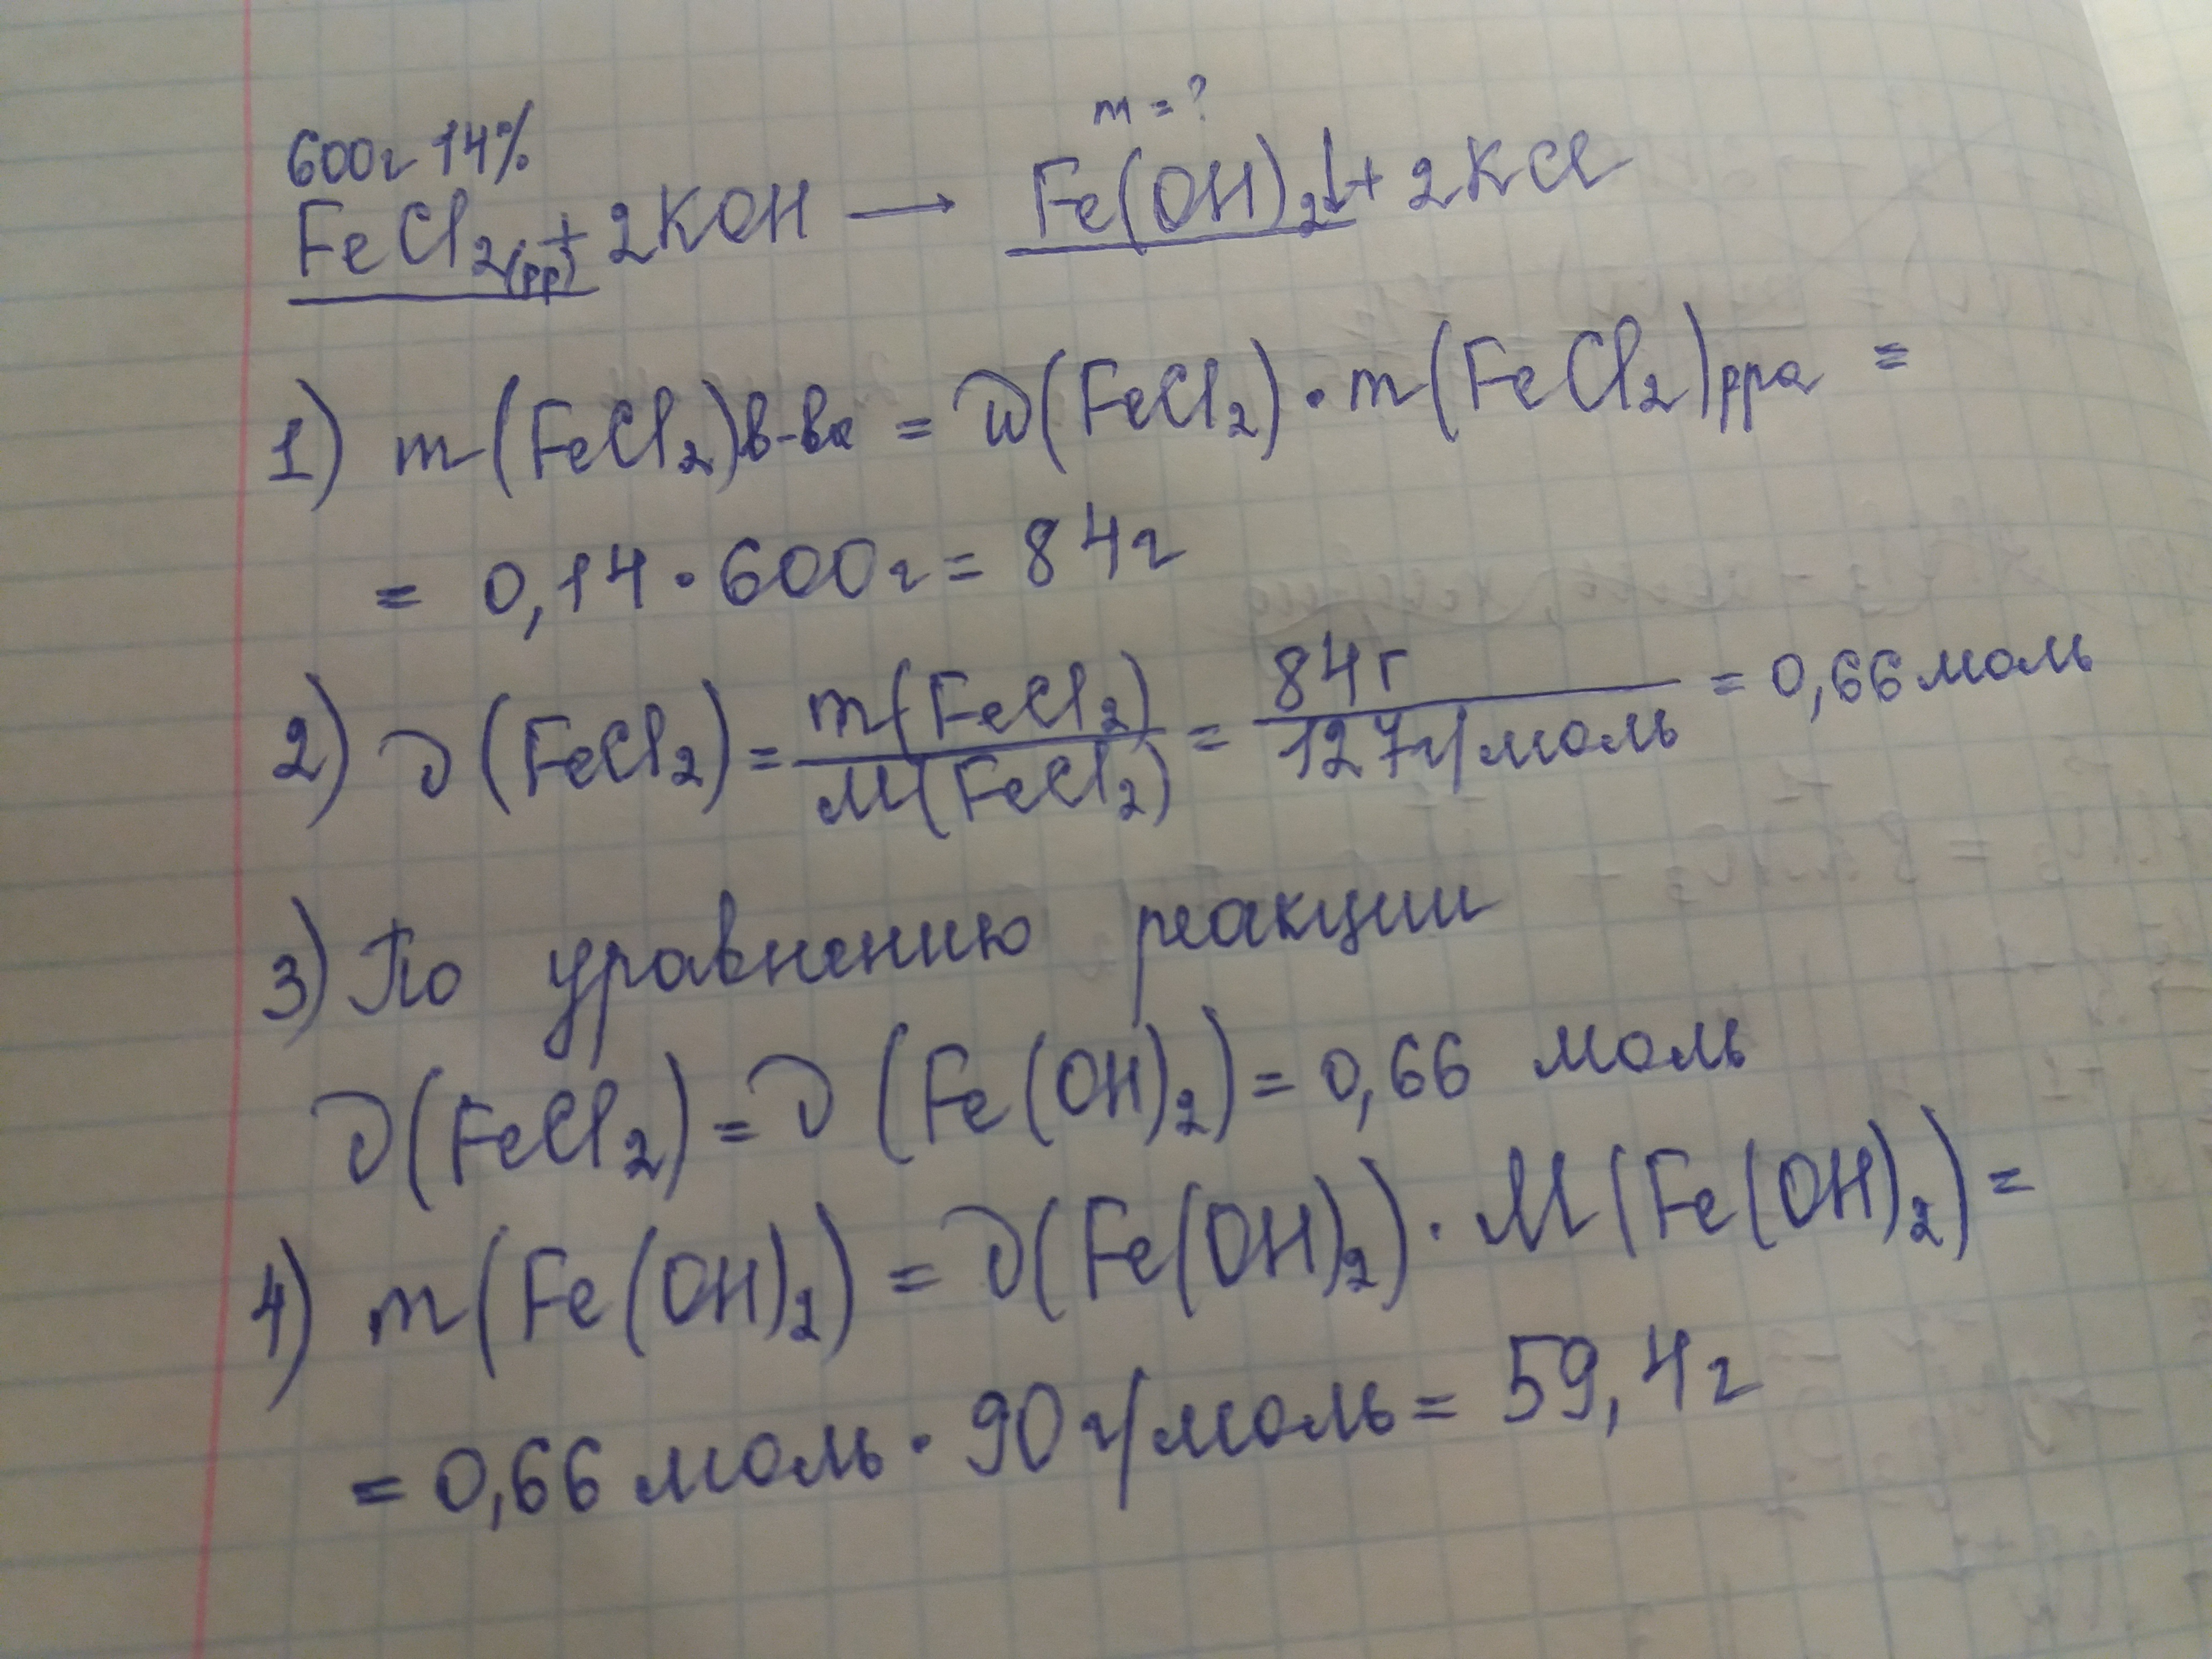 m = ?
600г 14%
FeCl₂(рр) + 2KOH → Fe(OH)₂↓ + 2KCl
1) m(FeCl₂)в-ва = ω(FeCl₂)·m(FeCl₂)рра =
= 0,14·600г = 84г
2) ν(FeCl₂) = m(FeCl₂)/M(FeCl₂) = 84г/127г/моль = 0,66 моль
3) По уравнению реакции
ν(FeCl₂) = ν(Fe(OH)₂) = 0,66 моль
4) m(Fe(OH)₂) = ν(Fe(OH)₂)·M(Fe(OH)₂) =
= 0,66 моль·90г/моль = 59,4г